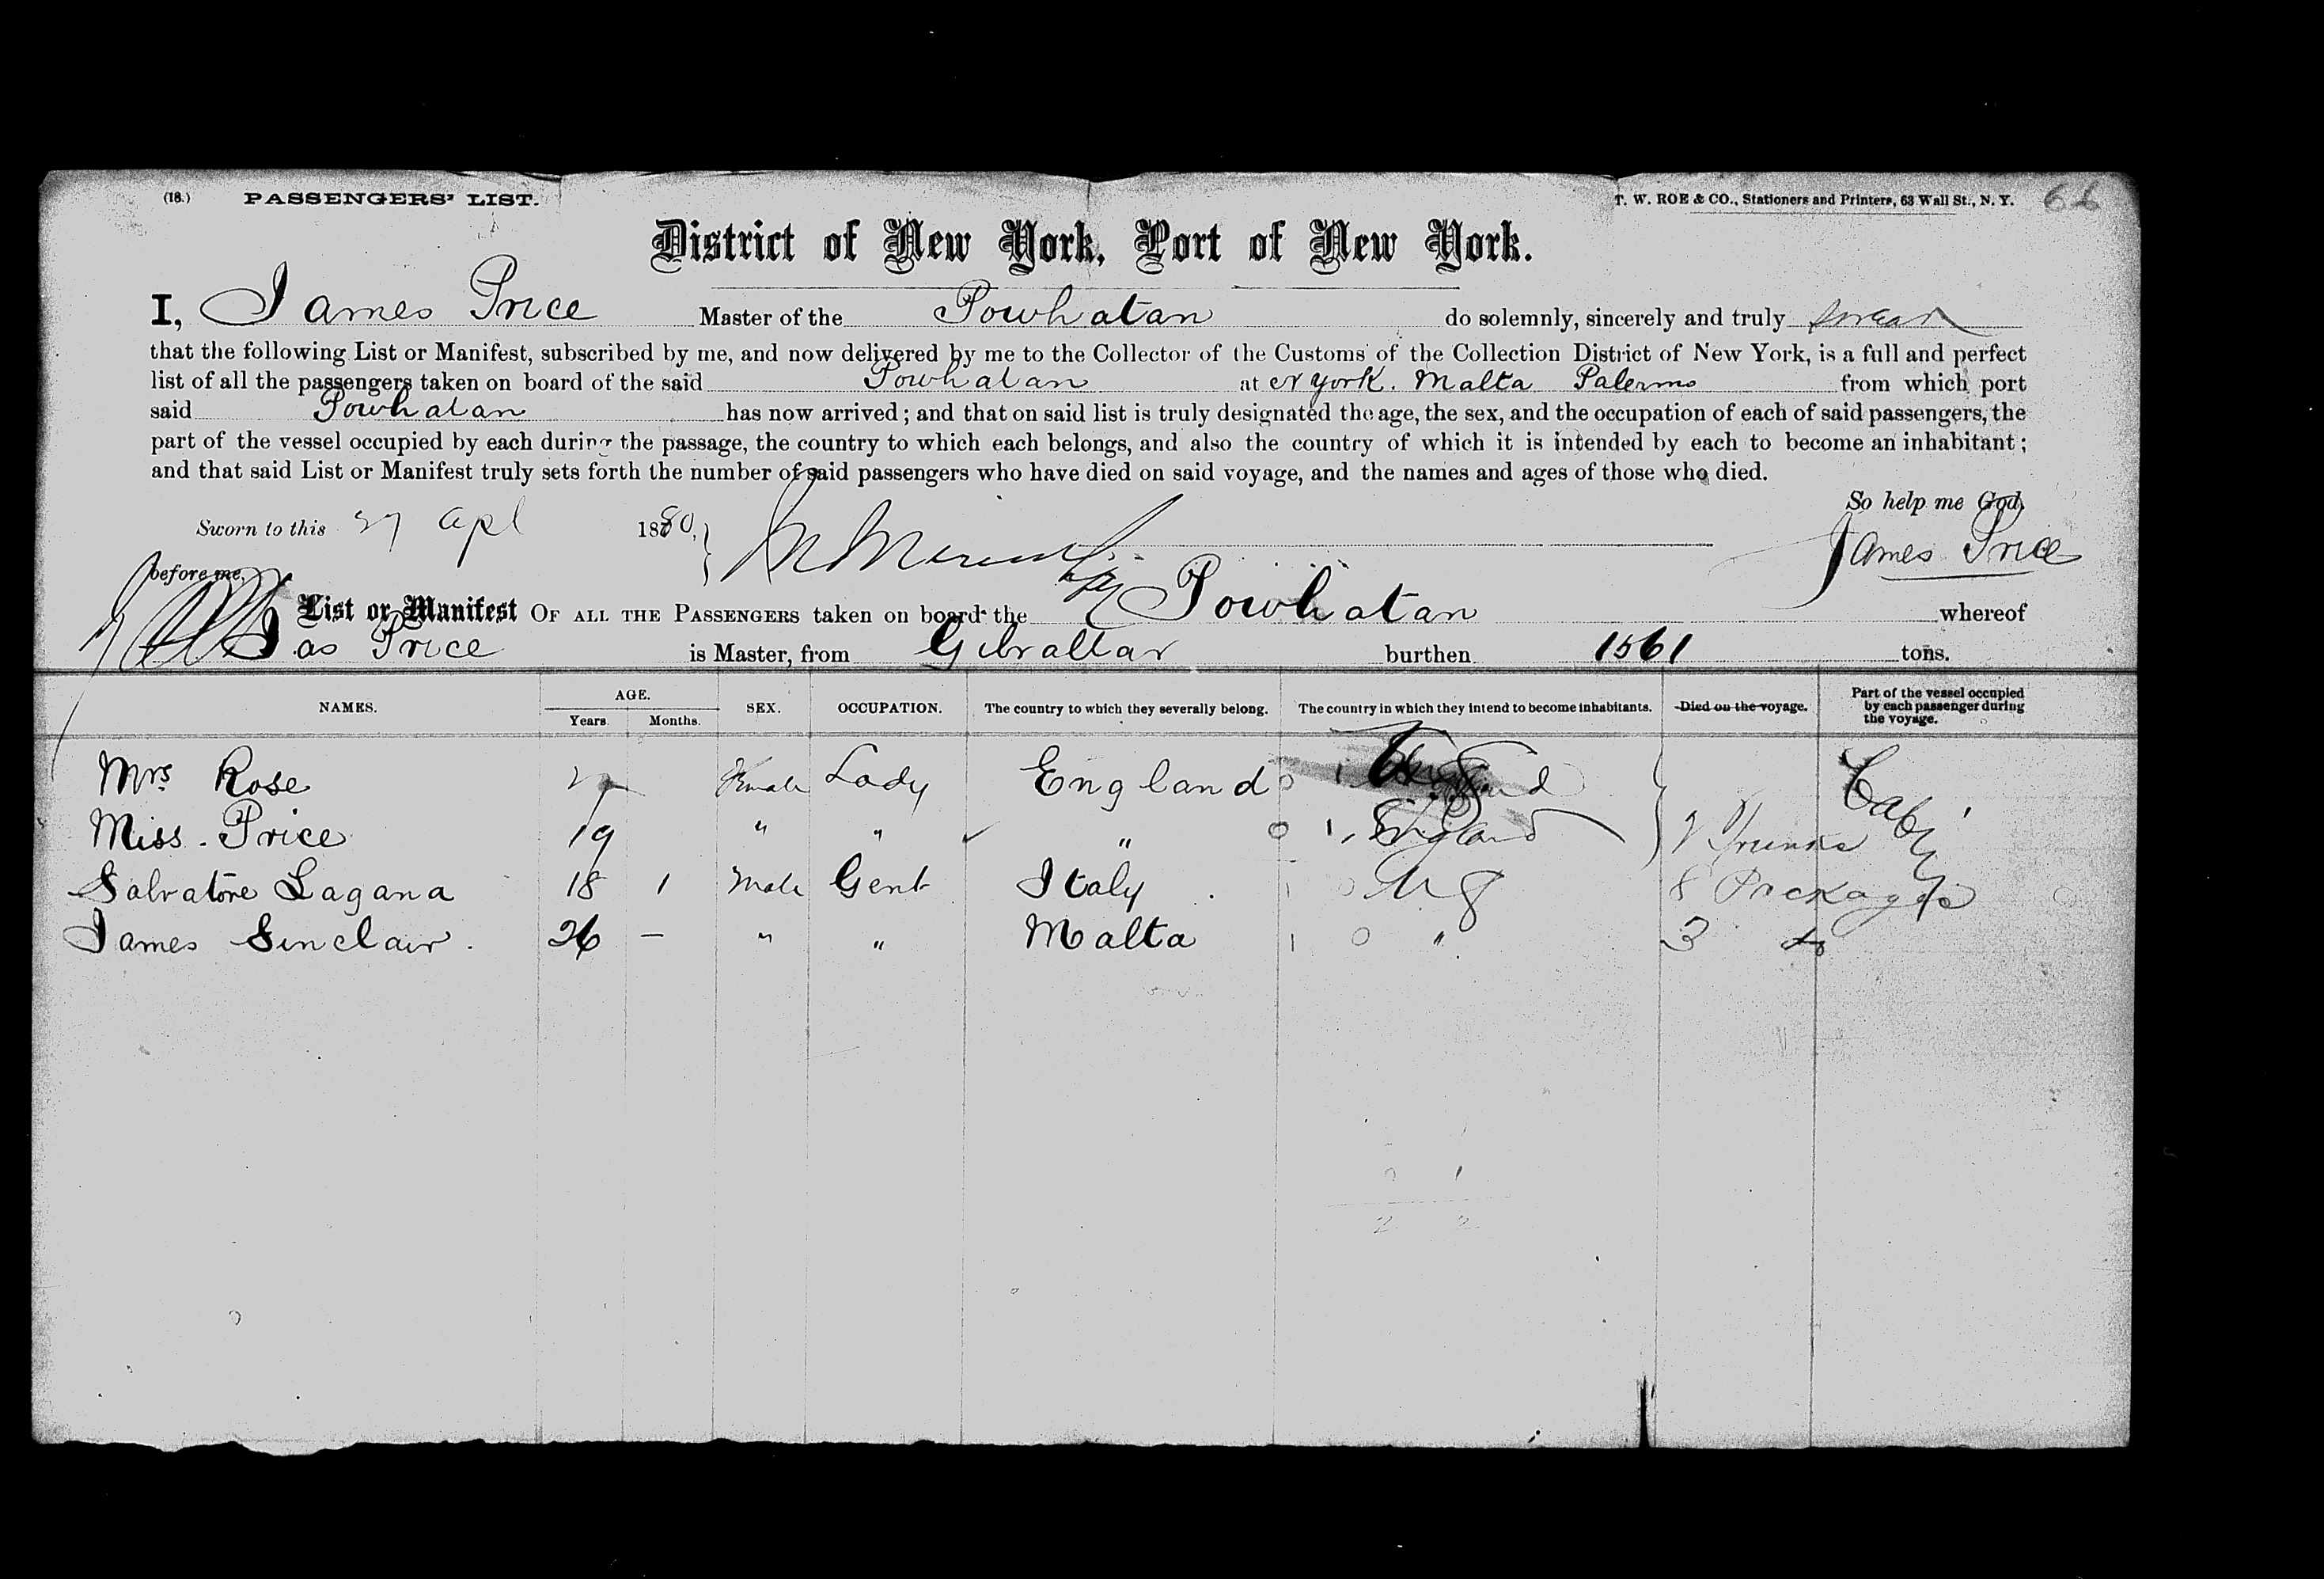 (18.) PASSENGERS' LIST. T. W. ROE & CO., Stationers and Printers, 63 Wall St., N. Y. 66
District of New York, Port of New York.
I, James Price Master of the Powhatan do solemnly, sincerely and truly swear
that the following List or Manifest, subscribed by me, and now delivered by me to the Collector of the Customs of the Collection District of New York, is a full and perfect
list of all the passengers taken on board of the said Powhatan at N York. Malta Palermo from which port
said Powhatan has now arrived; and that on said list is truly designated the age, the sex, and the occupation of each of said passengers, the
part of the vessel occupied by each during the passage, the country to which each belongs, and also the country of which it is intended by each to become an inhabitant;
and that said List or Manifest truly sets forth the number of said passengers who have died on said voyage, and the names and ages of those who died.
So help me God,
Sworn to this 27 Apl 1880, James Price
before me,
List or Manifest OF ALL THE PASSENGERS taken on board the Powhatan whereof
Jas Price is Master, from Gibraltar burthen 1561 tons.
NAMES. AGE. Years. Months. SEX. OCCUPATION. The country to which they severally belong. The country in which they intend to become inhabitants. Died on the voyage. Part of the vessel occupied by each passenger during the voyage.
Mrs Rose Female Lady England 0 1
Miss. Price 19 " " " 0 1 England 2 Trunks
Salvatore Lagana 18 1 Male Gent Italy 1 0 8 Packages
James Sinclair. 26 — " " Malta 1 0 " 3 do
2 1
2 2